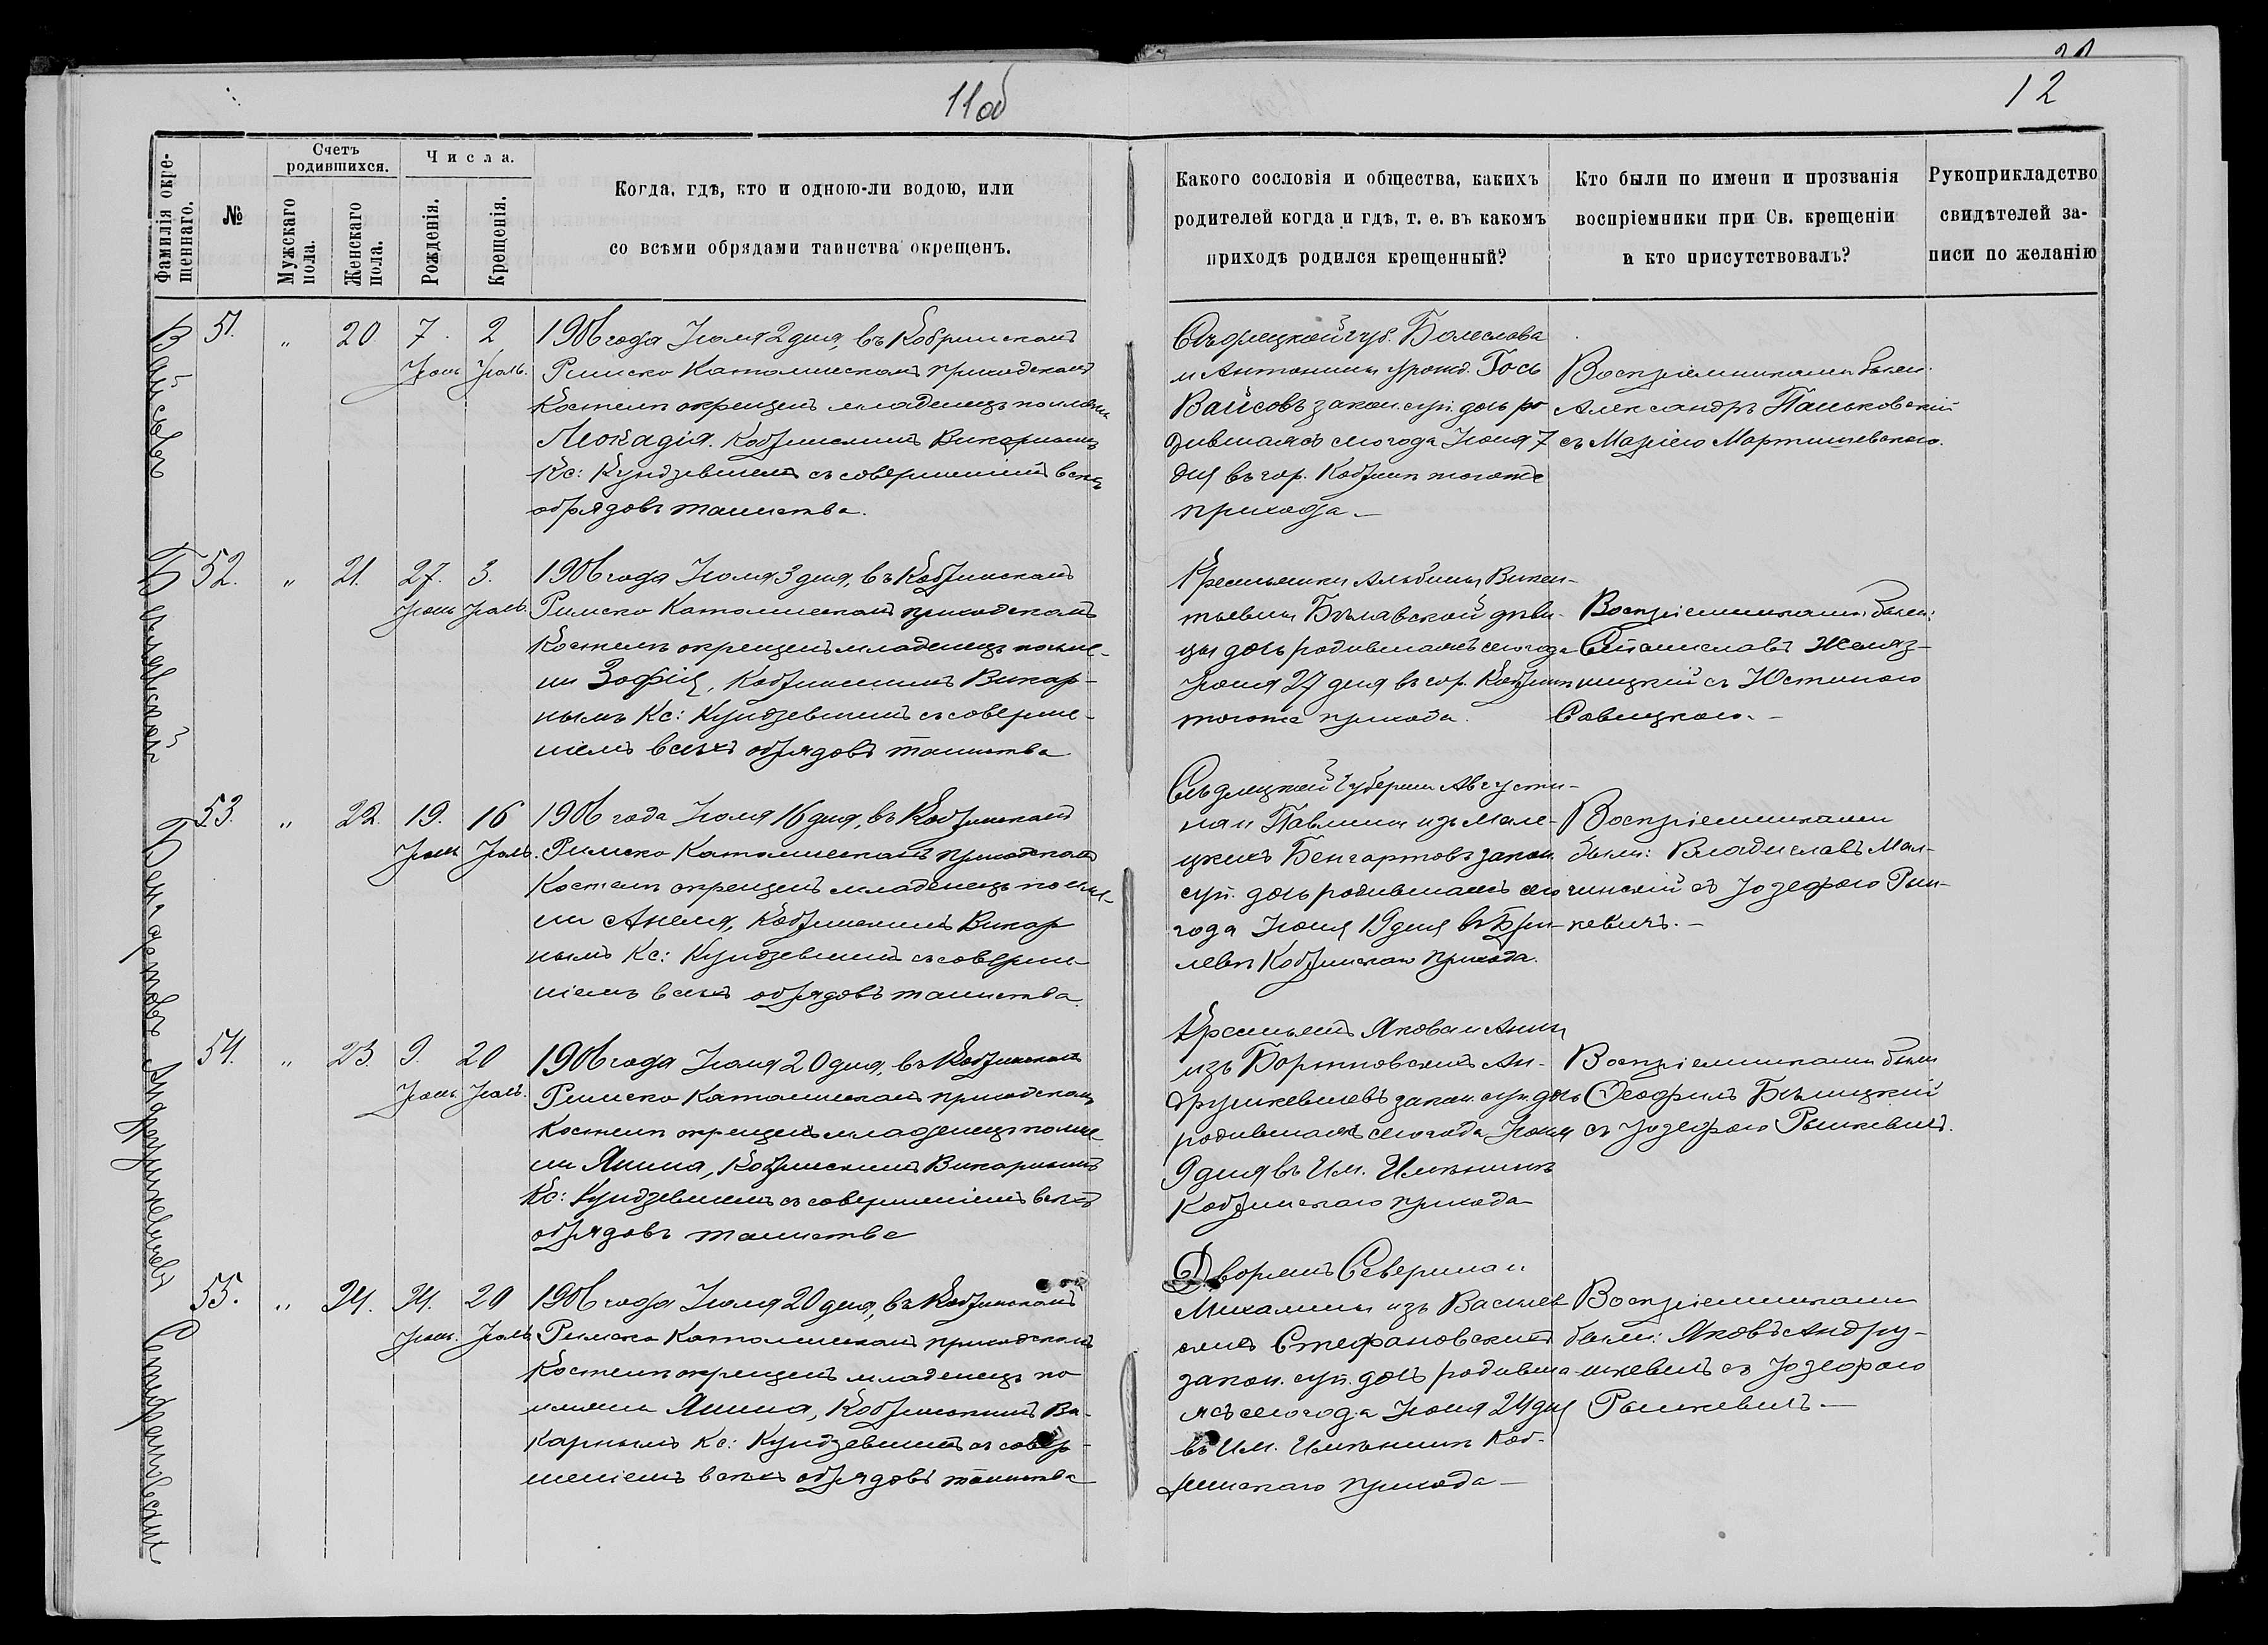 11об
12
Фамилія окре-
щеннаго.
№
Счетъ
родившихся.
Мужскаго
пола.
Женскаго
пола.
Числа.
Рожденія.
Крещенія.
Когда, гдѣ, кто и одною-ли водою, или
со всѣми обрядами таинства окрещенъ.
Какого сословія и общества, какихъ
родителей когда и гдѣ, т. е. въ какомъ
приходѣ родился крещенный?
Кто были по имени и прозванія
воспріемники при Св. крещеніи
и кто присутствовалъ?
Рукоприкладство
свидѣтелей за-
писи по желанію
Вайсовъ
51.
"
20
7.
Іюнь
2
Іюль.
1906 года Іюля 2 дня, въ Кобринскомъ
Римско Католическомъ приходскомъ
Костелѣ окрещенъ младенецъ по имени
Леокадія. Кобринскимъ Викарнымъ
Кс: Кундзевичемъ съ совершеніемъ всѣхъ
обрядовъ таинства.
Сѣдлецкой губ. Болеслава
и Антонины урожд. Гось
Вайсовъ закон. суп. дочь ро
дившаяся сего года Іюня 7
дня въ гор. Кобринѣ тогоже
прихода. —
Воспріемниками были:
Александръ Паньковскій
съ Маріею Мартишевскою.
Бѣлявской
52.
"
21.
27.
Іюнь
3.
Іюль.
1906 года Іюля 3 дня, въ Кобринскомъ
Римско Католическомъ приходскомъ
Костелѣ окрещенъ младенецъ по име-
ни Зофія, Кобринскимъ Викар-
нымъ Кс: Кундзевичемъ съ соверше-
ніемъ всѣхъ обрядовъ таинства
Крестьянки Альбины Викен-
тьевны Бѣлявской дѣви-
цы дочь родившаяся сего года
Іюня 27 дня въ гор. Кобринѣ
тогоже прихода.
Воспріемниками были:
Станиславъ Желяз-
ницкій съ Юстиною
Савицкою. —
Бенгартовъ
53.
"
22.
19.
Іюнь
16
Іюль.
1906 года Іюля 16 дня, въ Кобринскомъ
Римско Католическомъ приходскомъ
Костелѣ окрещенъ младенецъ по име-
ни Анеля, Кобринскимъ Викар
нымъ Кс: Кундзевичемъ съ соверше-
ніемъ всѣхъ обрядовъ таинства.
Сѣдлецкой Губерніи Августи-
на и Павлины изъ Мале-
цкихъ Бенгартовъ закон.
суп. дочь родившаяся сего
года Іюня 19 дня въ
Кобринскаго прихода.
Воспріемниками
были: Владиславъ Мал-
чинскій съ Іозефою Рын-
кевичъ. —
Андрушкевичевъ
54.
"
23.
9.
Іюнь
20
Іюль.
1906 года Іюля 20 дня, въ Кобринскомъ
Римско Католическомъ приходскомъ
Костелѣ окрещенъ младенецъ по име
ни Янина, Кобринскимъ Викарнымъ
Кс: Кундзевичемъ съ совершеніемъ всѣхъ
обрядовъ таинства
Крестьянъ Якова и Анны
изъ Бортновскихъ Ан-
друшкевичевъ закон. суп. дочь
родившаяся сего года Іюня
9 дня въ Им.
Кобринскаго прихода
Воспріемниками были
Ѳеофилъ Бѣлицкій
съ Іозефою Рынкевичъ.
Стефановскихъ
55.
"
24.
24.
Іюнь.
20
Іюль
1906 года Іюля 20 дня, въ Кобринскомъ
Римско Католическомъ приходскомъ
Костелѣ окрещенъ младенецъ по
имени Янина, Кобринскимъ Ви-
карнымъ Кс: Кундзевичемъ съ совер-
шеніемъ всѣхъ обрядовъ таинства
Дворянъ Северина и
Михалины изъ Василев
скихъ Стефановскихъ
закон. суп. дочь родивша
яся сего года Іюня 24 дня
въ Им. Коб-
ринскаго прихода —
Воспріемниками
были: Яковъ Андру-
шкевичъ съ Іозефою
Рынкевичъ. —